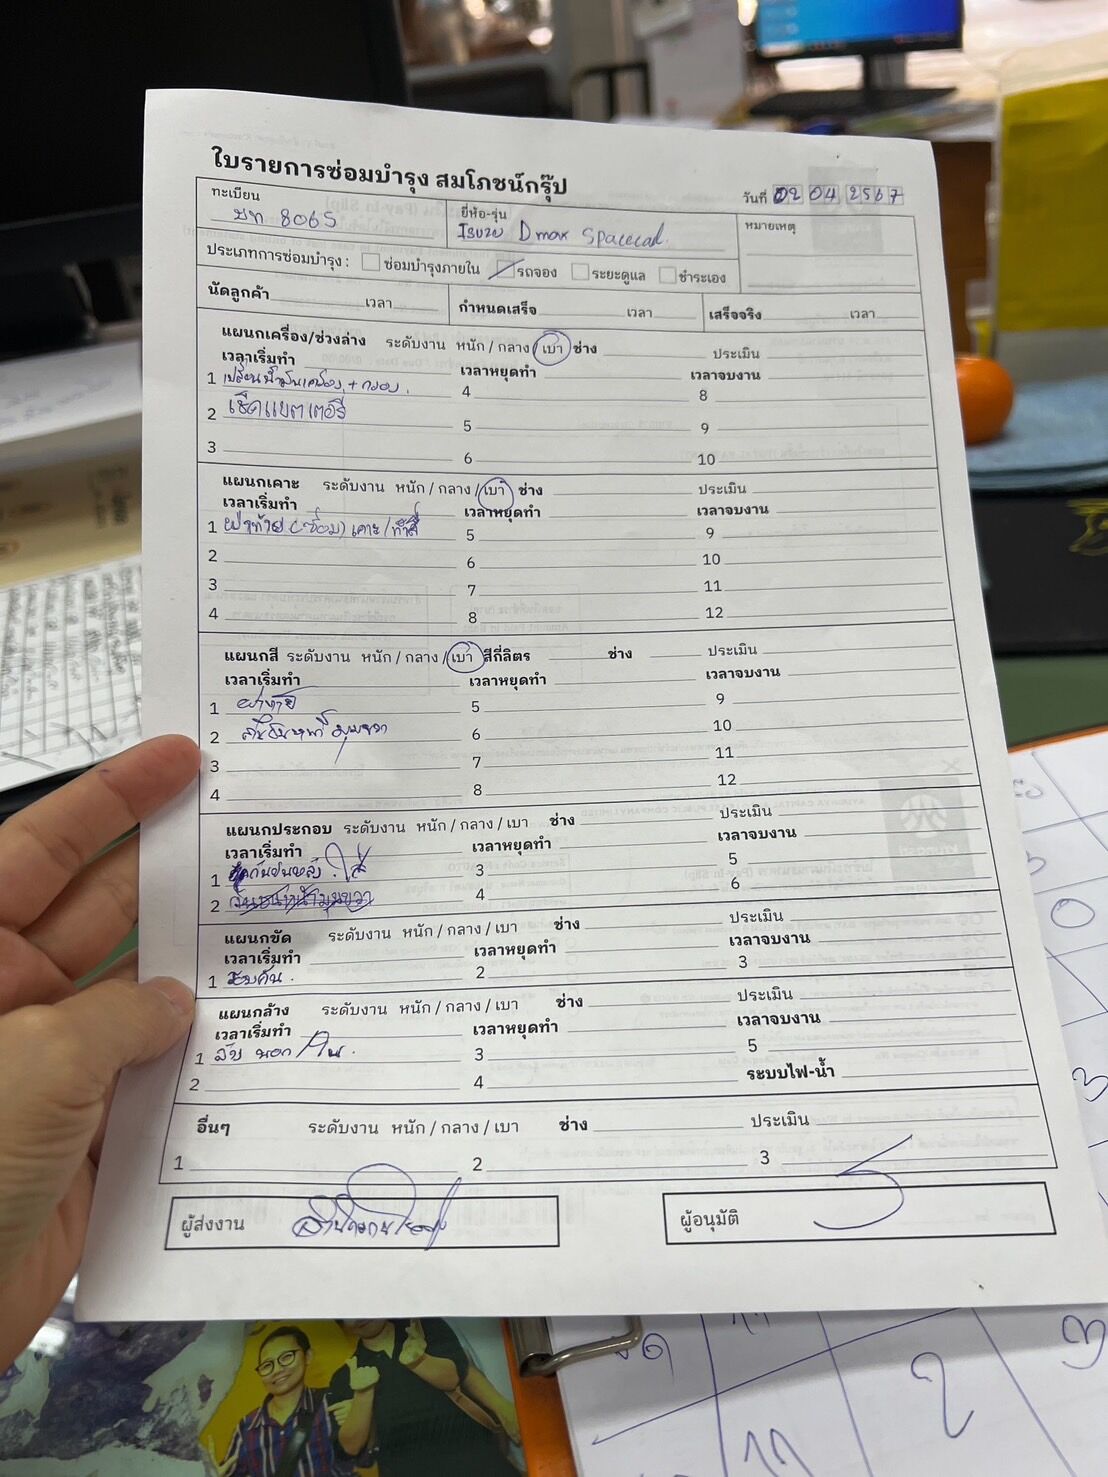 ใบรายการซ่อมบำรุง สมโภชน์กรุ๊ป
วันที่ 02 04 2567
ทะเบียน ยี่ห้อ-รุ่น หมายเหตุ
บท 8065 Isuzu Dmax Spacecab
ประเภทการซ่อมบำรุง : ซ่อมบำรุงภายใน รถจอง ระยะดูแล ชำระเอง
นัดลูกค้า เวลา กำหนดเสร็จ เวลา เสร็จจริง เวลา
แผนกเครื่อง/ช่วงล่าง ระดับงาน หนัก / กลาง / เบา ช่าง ประเมิน
เวลาเริ่มทำ เวลาหยุดทำ เวลาจบงาน
1 เปลี่ยนน้ำมันเครื่อง + กรอง 4 8
2 เช็คแบตเตอรี่ 5 9
3 6 10
แผนกเคาะ ระดับงาน หนัก / กลาง / เบา ช่าง ประเมิน
เวลาเริ่มทำ เวลาหยุดทำ เวลาจบงาน
1 ฝาท้าย (ซ่อม) เคาะ / ทำสี 5 9
2 6 10
3 7 11
4 8 12
แผนกสี ระดับงาน หนัก / กลาง / เบา สีกี่ลิตร ช่าง ประเมิน
เวลาเริ่มทำ เวลาหยุดทำ เวลาจบงาน
1 ฝาท้าย 5 9
2 มุมขวา 6 10
3 7 11
4 8 12
แผนกประกอบ ระดับงาน หนัก / กลาง / เบา ช่าง ประเมิน
เวลาเริ่มทำ เวลาหยุดทำ เวลาจบงาน
1 กันชนหลัง ใส่ 3 5
2 กันชนหน้ามุมขวา 4 6
แผนกขัด ระดับงาน หนัก / กลาง / เบา ช่าง ประเมิน
เวลาเริ่มทำ เวลาหยุดทำ เวลาจบงาน
1 รอบคัน 2 3
แผนกล้าง ระดับงาน หนัก / กลาง / เบา ช่าง ประเมิน
เวลาเริ่มทำ เวลาหยุดทำ เวลาจบงาน
1 ล้าง นอก / ใน 3 5
2 4 ระบบไฟ-น้ำ
อื่นๆ ระดับงาน หนัก / กลาง / เบา ช่าง ประเมิน
1 2 3
ผู้ส่งงาน ผู้อนุมัติ